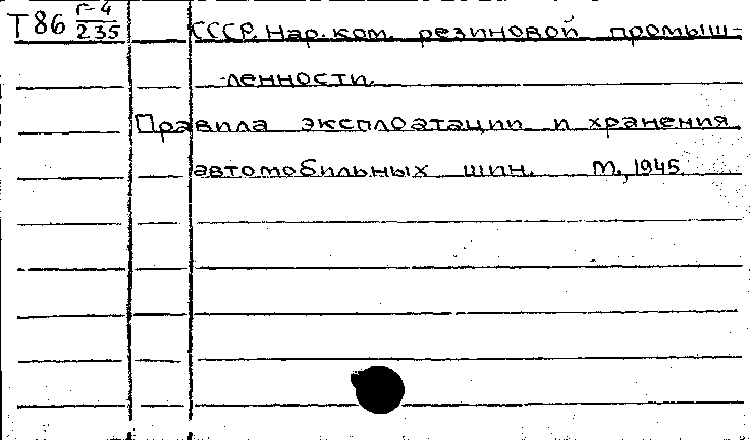 Т86 г-4/235
СССР. Нар. ком. резиновой промыш-
ленности.
Правила эксплоатации и хранения
автомобильных шин. М., 1945